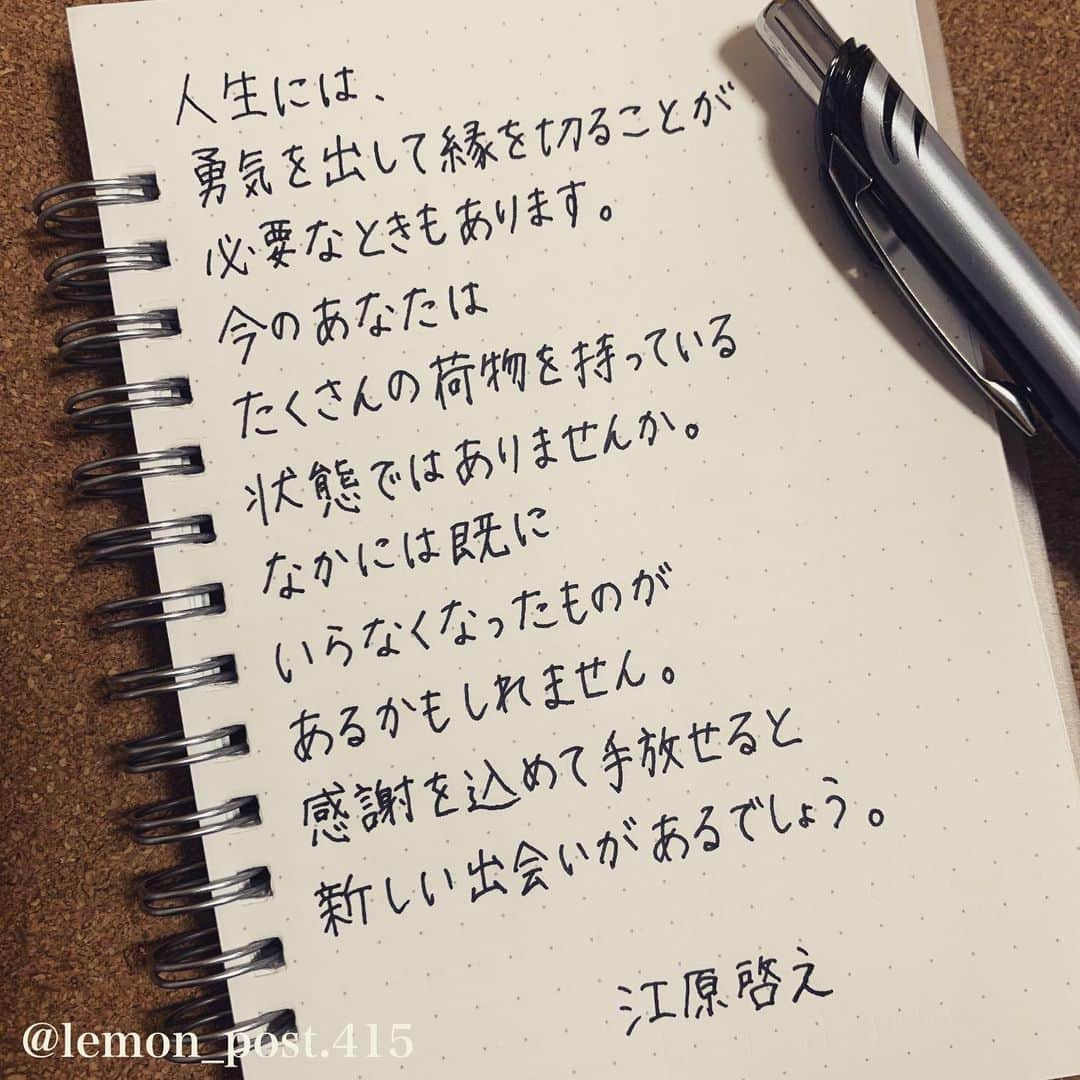 人生には、
勇気を出して縁を切ることが
必要なときもあります。
今のあなたは
たくさんの荷物を持っている
状態ではありませんか。
なかには既に
いらなくなったものが
あるかもしれません。
感謝を込めて手放せると
新しい出会いがあるでしょう。
江原啓え
@lemon_post.415